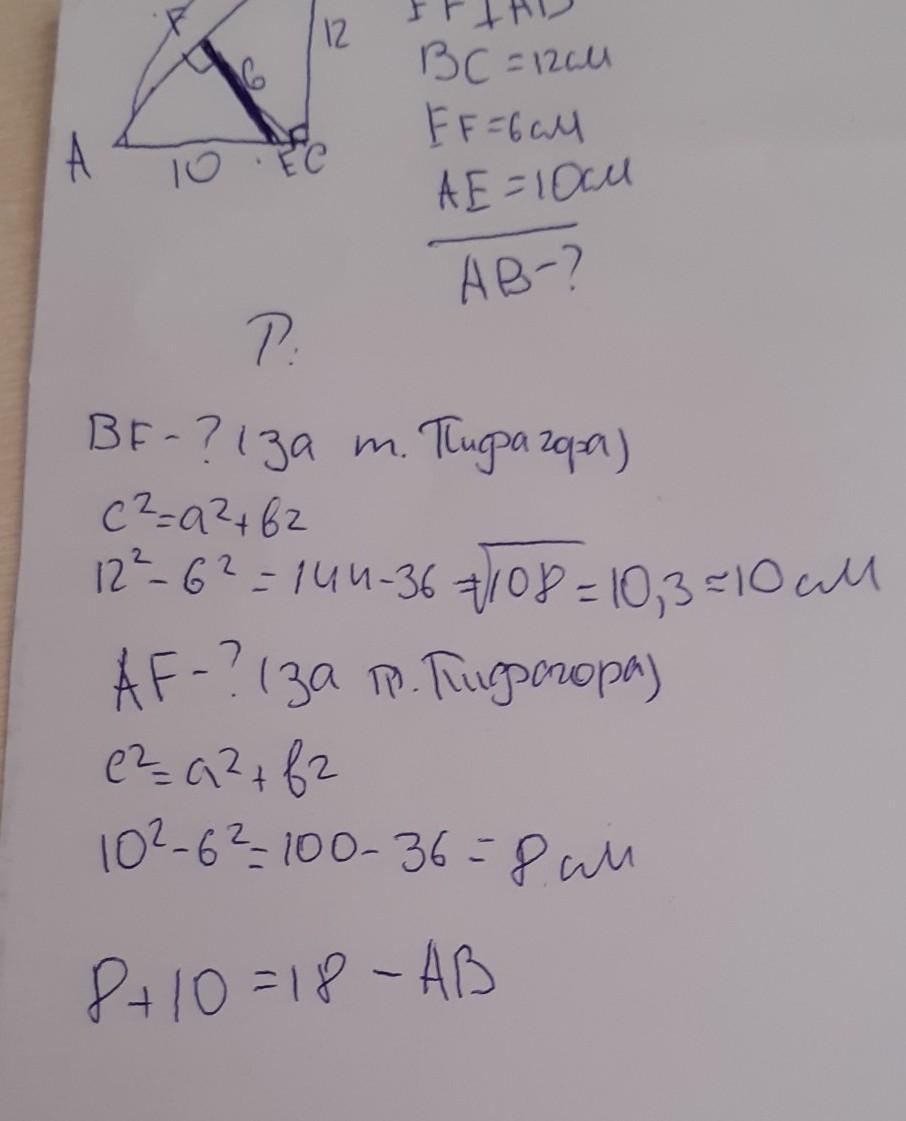 F
12
6
A
10
E C
EF ⊥ AB
BC = 12 см
EF = 6 см
AE = 10 см
AB - ?
Р.
BF - ? (за т. Пифагора)
c² = a² + b2
12² - 6² = 144 - 36 = √108 = 10,3 = 10 см
AF - ? (за т. Пифагора)
c² = a² + b2
10² - 6² = 100 - 36 = 8 см
8 + 10 = 18 - AB